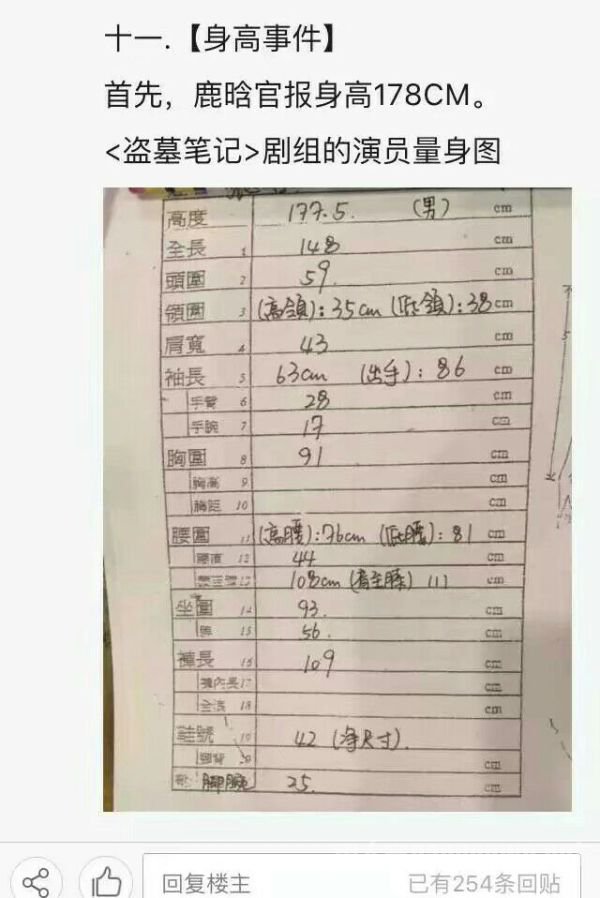 十一.【身高事件】
首先，鹿晗官报身高178CM。
<盗墓笔记>剧组的演员量身图
高度 177.5. (男) cm
全長 1 148 cm
頭圍 2 59. cm
領圍 3 (高領)：35cm (低領)：38 cm
肩寬 4 43 cm
袖長 5 63cm (出手)：86 cm
手臂 6 28 cm
手腕 7 17 cm
胸圍 8 91 cm
胸高 9 cm
胸距 10 cm
腰圍 11 (高腰)：76cm (低腰)：81 cm
腰直 12 44 cm
13 108cm 111 cm
坐圍 14 93. cm
15 56. cm
褲長 16 109 cm
褲內長 17 cm
全浪 18 cm
鞋號 19 42 (净尺寸).
cm
腳腕 25. cm
回复楼主 已有254条回贴